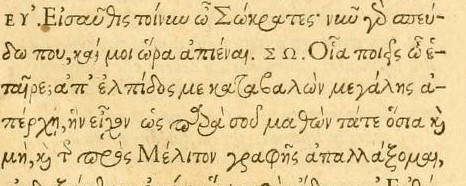 ΕΥ. Εἰσαῦθις τοίνυν ὦ Σώκρατες· νῦν γὸ σπεύ-
δω που, καί μοι ὥρα ἀπιέναι. ΣΩ. Οἷα ποιεῖς ὦ ἑ-
ταῖρε; ἀπ' ἐλπίδος με καταβαλὼν μεγάλης ἀ-
πέρχῃ, ἣν εἶχον ὡς παρὰ σοῦ μαθὼν τάτε ὅσια καὶ
μὴ, καὶ τῆς πρὸς Μέλιτον γραφῆς ἀπαλλάξομαι,